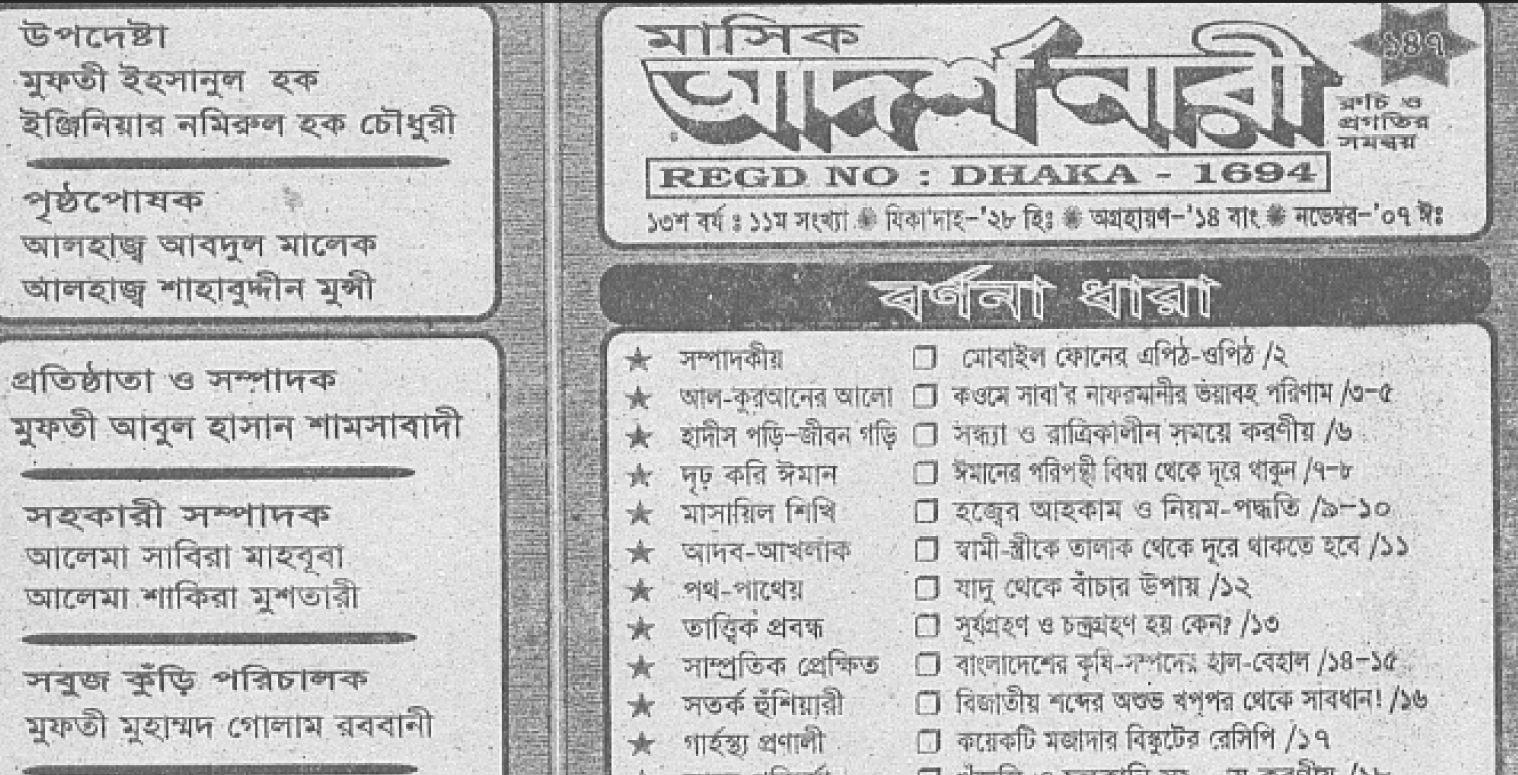 উপদেষ্টা
মুফতী ইহসানুল হক
ইঞ্জিনিয়ার নমিরুল হক চৌধুরী
পৃষ্ঠপোষক
আলহাজ্ব আবদুল মালেক
আলহাজ্ব শাহাবুদ্দীন মুন্সী
প্রতিষ্ঠাতা ও সম্পাদক
মুফতী আবুল হাসান শামসাবাদী
সহকারী সম্পাদক
আলেমা সাবিরা মাহবূবা
আলেমা শাকিরা মুশতারী
সবুজ কুঁড়ি পরিচালক
মুফতী মুহাম্মদ গোলাম রববানী
মাসিক
আদর্শ নারী
১৪৭
রুচি ও
প্রগতির
সমন্বয়
REGD NO : DHAKA - 1694
১৩শ বর্ষ ঃ ১১ম সংখ্যা যিকা'দাহ-'২৮ হিঃ অগ্রহায়ণ-'১৪ বাং নভেম্বর-'০৭ ঈঃ
বর্ণনা ধারা
★ সম্পাদকীয় ❐ মোবাইল ফোনের এপিঠ-ওপিঠ /২
★ আল-কুরআনের আলো ❐ কওমে সাবা'র নাফরমানীর ভয়াবহ পরিণাম /৩-৫
★ হাদীস পড়ি-জীবন গড়ি ❐ সন্ধ্যা ও রাত্রিকালীন সময়ে করণীয় /৬
★ দৃঢ় করি ঈমান ❐ ঈমানের পরিপন্থী বিষয় থেকে দূরে থাকুন /৭-৮
★ মাসায়িল শিখি ❐ হজ্বের আহকাম ও নিয়ম-পদ্ধতি /৯-১০
★ আদব-আখলাক ❐ স্বামী-স্ত্রীকে তালাক থেকে দূরে থাকতে হবে /১১
★ পথ-পাথেয় ❐ যাদু থেকে বাঁচার উপায় /১২
★ তাত্ত্বিক প্রবন্ধ ❐ সূর্যগ্রহণ ও চন্দ্রগ্রহণ হয় কেন? /১৩
★ সাম্প্রতিক প্রেক্ষিত ❐ বাংলাদেশের কৃষি-সম্পদের হাল-বেহাল /১৪-১৫
★ সতর্ক হুঁশিয়ারী ❐ বিজাতীয় শব্দের অশুভ খপ্পর থেকে সাবধান! /১৬
★ গার্হস্থ্য প্রণালী ❐ কয়েকটি মজাদার বিস্কুটের রেসিপি /১৭